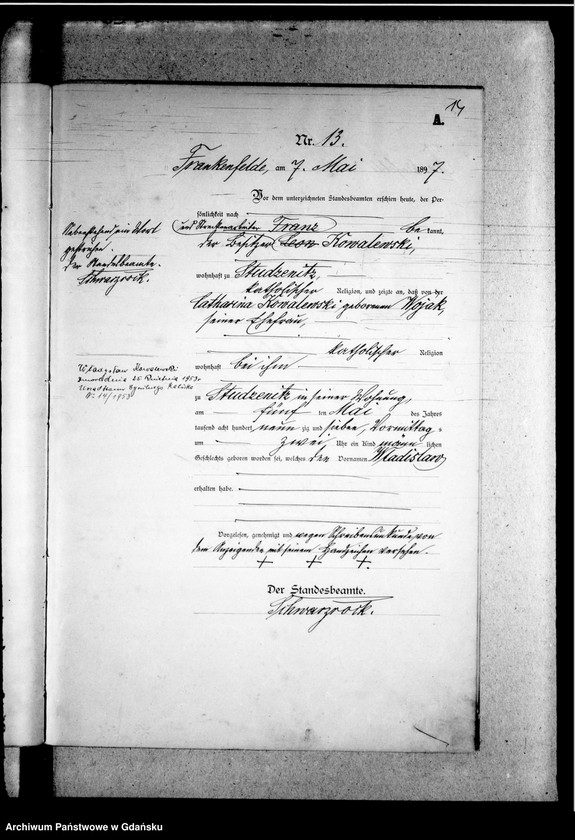 14
A.
Nr. 13.
Frankenfelde, am 7. Mai 1897.
Vor dem unterzeichneten Standesbeamten erschien heute, der Per-
sönlichkeit nach
und Streckenarbeiter Franz be kannt,
der Besitzer Leon Kowalewski,
wohnhaft zu Studzenitz,
katholischer Religion, und zeigte an, daß von der
Catharina Kowalewski geborenen Wojak,
seiner Ehefrau,
katholischer Religion
wohnhaft bei ihm
zu Studzenitz in seiner Wohnung,
am fünf ten Mai des Jahres
tausend acht hundert neun zig und sieben, Vormittag s
um zwei Uhr ein Kind männ lichen
Geschlechts geboren worden sei, welches den Vornamen Wladislaw
erhalten habe.
Vorgelesen, genehmigt und wegen Schreibensunkunde von
dem Anzeigenden mit seinem Handzeichen versehen.
+ + +
Der Standesbeamte.
Schwarzrock.
Nebenstehend ein Wort
gestrichen.
Der Standesbeamte.
Schwarzrock.
Władysław Kowalewski
25 1959r
Nr 14/1959
Archiwum Państwowe w Gdańsku